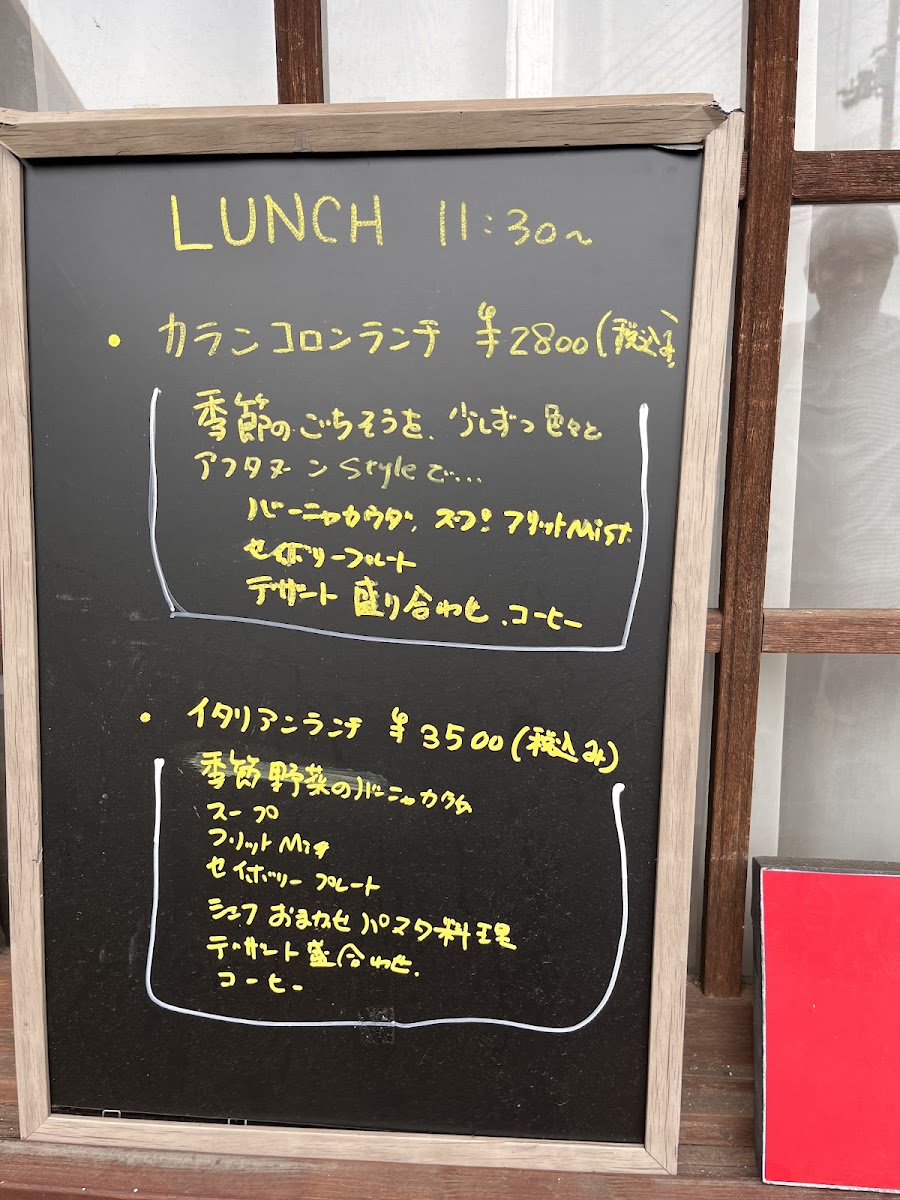 LUNCH 11:30～
・カランコロンランチ ¥2800(税込み)
季節のごちそうを、少しずつ色々と
アフタヌーンstyleで...
バーニャカウダ、スープ、フリットMist
セイボリープレート
デザート盛り合わせ、コーヒー
・イタリアンランチ ¥3500(税込み)
季節野菜のバーニャカウダ
スープ
フリットMist
セイボリープレート
シェフおまかせパスタ料理
デザート盛合わせ、
コーヒー